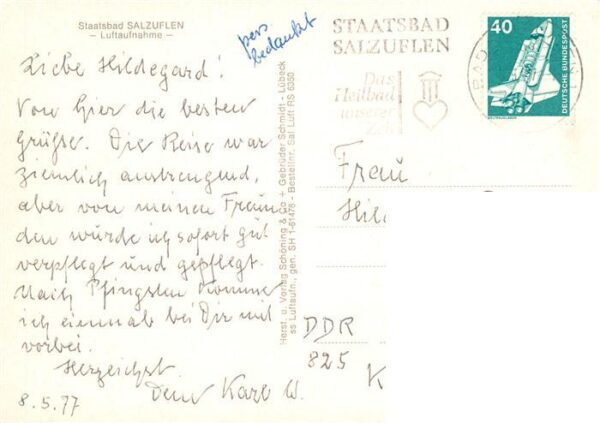 Staatsbad SALZUFLEN
– Luftaufnahme –
pers
bedankt
Liebe Hildegard!
Von hier die besten
Grüße. Die Reise war
ziemlich anstrengend,
aber von meinen Freun
den würde ich sofort gut
verpflegt und gepflegt.
Nach Pfingsten komme
ich einmal bei Dir mit
vorbei.
Herzlichst
Dein Karl W.
8.5.77
Horst u. Verlag Schöning & Co + Gebrüder Schmidt - Lübeck
ss Luftaufn., gen. SH 1-61476 - Bestellnr. Sal Luft RS 6350
STAATSBAD
SALZUFLEN
Das
Heilbad
unserer
Zeit
BAD
40
DEUTSCHE BUNDESPOST
Frau
Hil
DDR
825
K